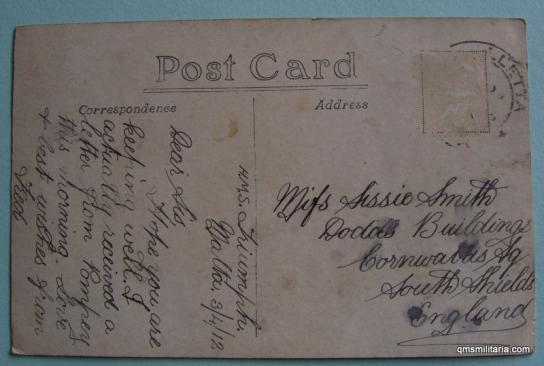 Post Card
Correspondence
Address
LETTA
H.M.S. Triumph,
Malta, 3/4/12
Dear Sis,
Hope you are
keeping well. I
actually received a
letter from Pompey
this morning Love
& best wishes from
Fred
Miss Sissie Smith
Dodds Buildings
Cornwallis Sq
South Shields
England
qmsmilitaria.com